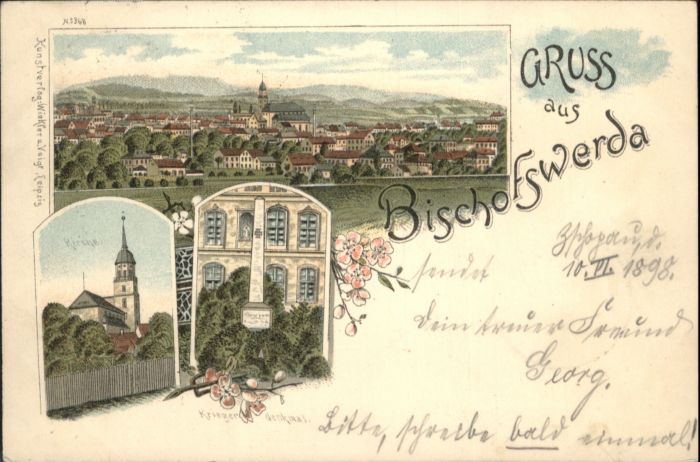 No 368
Kunstverlag: Winkler u. Voigt, Leipzig
GRUSS
aus
Bischofswerda
Kirche.
Krieger denkmal.
Zschopau, d.
10. VI. 1898.
sendet
Dein treuer Freund
Georg.
Bitte, schreibe bald einmal!